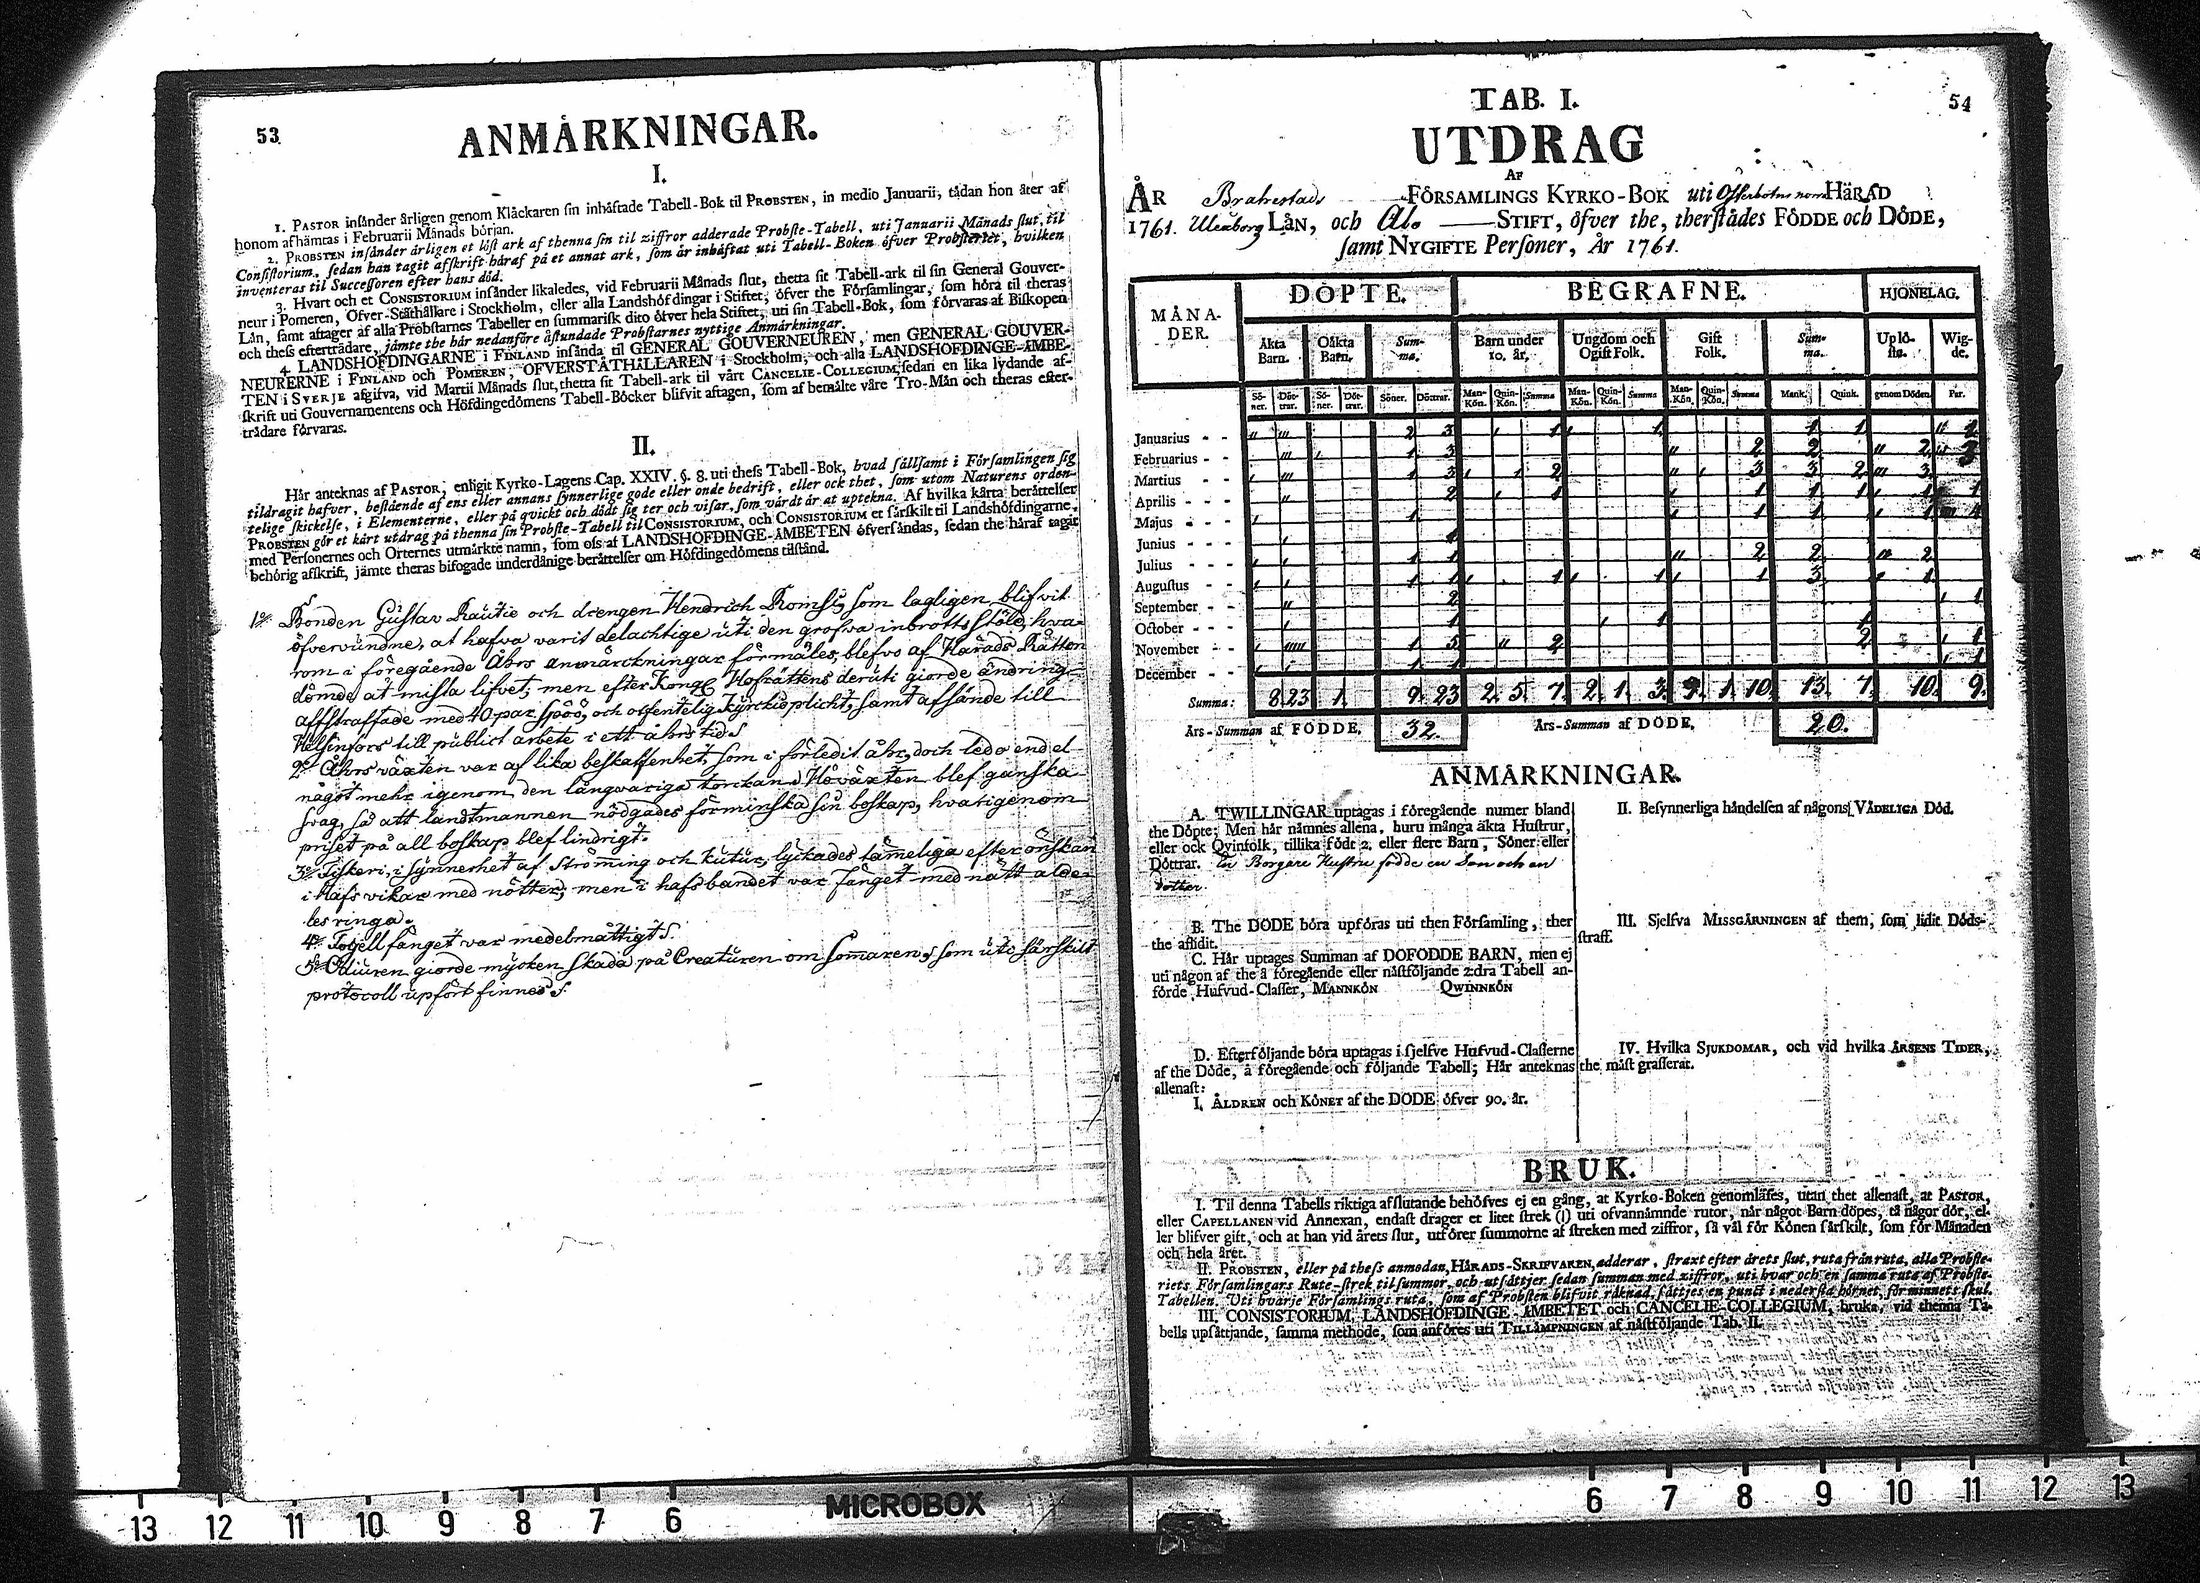 53
ANMÄRKNINGAR.
I.
1. PASTOR insånder årligen genom Klåckaren sin inhåftade Tabell-Bok til PROBSTEN, in medio Januarii, tådan hon åter af
honom afhämtas i Februarii Månads början.
2. PROBSTEN insånder årligen et löst ark af thenna sin til ziffror adderade Probste-Tabell, uti Januarii Månads slut, til
Consistorium, sedan han tagit afskrift håraf på et annat ark, som år inbåftat uti Tabell-Boken öfver Probsteriet, hvilken
inventeras til Successoren efter hans död.
3. Hvart och et CONSISTORIUM insånder likaledes, vid Februarii Månads slut, thetta sit Tabell-ark til sin General Gouver-
neur i Pomeren, Öfver-Ståthållare i Stockholm, eller alla Landshöfdingar i Stiftet, öfver the Församlingar, som höra til theras
Lån, samt aftager af alla Probstarnes Tabeller en summarisk dito öfver hela Stiftet, uti sin Tabell-Bok, som förvaras af Biskopen
och thess efterträdare, jämte the här nedanföre åstundade Probstarnes nyttige Anmärkningar.
4. LANDSHÖFDINGARNE i FINLAND insånda til GENERAL GOUVERNEUREN, men GENERAL GOUVER-
NEURERNE i FINLAND och POMEREN, ÖFVERSTÅTHÅLLAREN i Stockholm, och alla LANDSHÖFDINGE-ÄMBE-
TEN i SVERJE afgifva, vid Martii Månads slut, thetta sit Tabell-ark til vårt CANCELIE-COLLEGIUM, sedan en lika lydande af-
skrift uti Gouvernamentens och Höfdingedömens Tabell-Böcker blifvit aftagen, som af bemälte våre Tro-Män och theras efter-
trädare förvaras.
II.
Här anteknas af PASTOR, enligit Kyrko-Lagens Cap. XXIV. §. 8. uti thess Tabell-Bok, hvad sällsamt i Församlingen sig
tildragit hafver, bestående af ens eller annans synnerlige gode eller onde bedrift, eller ock thet, som utom Naturens orden-
telige skickelse, i Elementerne, eller på qvickt och dödt sig ter och visar, som värdt är at uptekna. Af hvilka kårta berättelser
PROBSTEN gör et kårt utdrag på thenna sin Probste-Tabell til CONSISTORIUM, och CONSISTORIUM et särskilt til Landshöfdingarne,
med Personernes och Orternes utmärkte namn, som oss af LANDSHÖFDINGE-ÄMBETEN öfversändas, sedan the håraf tagit
behörig afskrift, jämte theras bifogade underdånige berättelser om Höfdingedömens tilstånd.
1o Bonden Gustav Rautie och drengen Hendrich Romsi, som lagligen blifvit
öfvervundne, at hafva varit delachtige uti den grofva inbrotts stöld, hva-
rom i föregående Åhrs anmärckningar förmäles, blefvo af Härads Rätten
dömde at mista lifvet; men efter Kongl Hofrättens deruti giorde ändring,
afstraffade med 40 par spöö, och offentelig kyrckioplicht, samt afsände till
Helsingfors till publict arbete i ett ahrs tid.
2o Åhrs växten var af lika beskaffenhet, som i förledit åhr, doch ledo en del
något mehr igenom den långvariga torckan. Höväxten blef ganska
svag, så att landtmannen nödgades förminska sin boskap, hvarigenom
priset på all boskap blef lindrigt.
3o Fiskeri, i synnerhet af Ströming och kutur, lyckades tämeliga efter önskan
i Hafs vikar med nötter; men i hafsbandet var fånget med nätt alde-
les ringa.
4o Fogell fånget var medelmåttigt.
5o Odiuren giorde mycken skada på Creaturen om Sommaren, som uti särskilt
protocoll upfört finnes.
54
TAB. I.
UTDRAG
AF
ÅR Brahestads FÖRSAMLINGS KYRKO-BOK uti Österbotns norra HÄRAD
1761. Uleåborg LÄN, och Åbo STIFT, öfver the, therstädes FÖDDE och DÖDE,
samt NYGIFTE Personer, År 1761.
MÅNA-DER. DÖPTE. BEGRAFNE. HJONELAG.
Äkta Barn. Oäkta Barn. Summa. Barn under 10. år. Ungdom och Ogift Folk. Gift Folk. Summa. Uplösta. Wigde.
Söner. Döttrar. Söner. Döttrar. Söner. Döttrar. Man-Kön. Quin-Kön. Summa Man-Kön. Quin-Kön. Summa Man-Kön. Quin-Kön. Summa Mank. Quink. genom Döden. Par.
Januarius - - 2 3 1 1 1 1
Februarius - - 1 3 2 2 2 3
Martius - - 1 3 2 3 3 2 3
Aprilis - - - 2 1 1 1 1 1 1
Majus - - - 1 1 1 1
Junius - - - 1
Julius - - - 1 1 2 2 2
Augustus - - 1 1 1 1 1 3 1
September - - 2 1
October - - 1 1 1
November - - 1 5 2 2 1
December - - 1 1 1
Summa: 8. 23 1. 9. 23 2. 5. 7. 2. 1. 3. 9. 1. 10. 13. 7. 10. 9.
Års-Summan af FÖDDE. 32. Års-Summan af DÖDE. 20.
ANMÄRKNINGAR.
A. TWILLINGAR uptagas i föregående numer bland
the Döpte; Men här nämnes allena, huru många äkta Hustrur,
eller ock Qvinfolk, tillika födt 2, eller flere Barn, Söner eller
Döttrar. En Borgare Hustru födde en Son och en
dotter.
B. The DÖDE böra upföras uti then Församling, ther
the aflidit.
C. Här uptages Summan af DÖFÖDDE BARN, men ej
uti någon af the å föregående eller nästföljande 2:dra Tabell an-
förde Hufvud-Classer, MANNKÖN QWINNKÖN
D. Efterföljande böra uptagas i sjelfve Hufvud-Classerne
af the Döde, å föregående och följande Tabell; Här anteknas
allenast:
I. ÅLDREN och KÖNET af the DÖDE öfver 90. år.
II. Besynnerliga händelsen af någons VÅDELIGA Död.
III. Sjelfva MISSGÄRNINGEN af them, som lidit Döds-
straff.
IV. Hvilka SJUKDOMAR, och vid hvilka ÅRSENS TIDER,
the mäst grasserat.
BRUK.
I. Til denna Tabells riktiga afslutande behöfves ej en gång, at Kyrko-Boken genomläses, utan thet allenast, at PASTOR,
eller CAPELLANEN vid Annexan, endast drager et litet strek (|) uti ofvannämnde rutor, när något Barn döpes, tå någor dör, el-
ler blifver gift, och at han vid årets slut, utförer summorne af streken med ziffror, så väl för Könen särskilt, som för Månaden
och hela året.
II. PROBSTEN, eller på thess anmodan, HÄRADS-SKRIFVAREN, adderar, straxt efter årets slut, ruta från ruta, alla Probste-
riets Församlingars Rute-strek til summor, och utsättjer sedan summan med ziffror, uti hvar och en samma ruta af Probste-
Tabellen. Uti hvarje Församlings ruta, som af Probsten blifvit räknad, sättjes en punct i nedersta hörnet, för minnets skul.
III. CONSISTORIUM, LANDSHÖFDINGE-ÄMBETET och CANCELIE-COLLEGIUM, bruka, vid thenna Ta-
bells upsättjande, samma methode, som anföres uti TILLÄMPNINGEN af nästföljande Tab. II.
13 12 11 10 9 8 7 6 MICROBOX 6 7 8 9 10 11 12 13